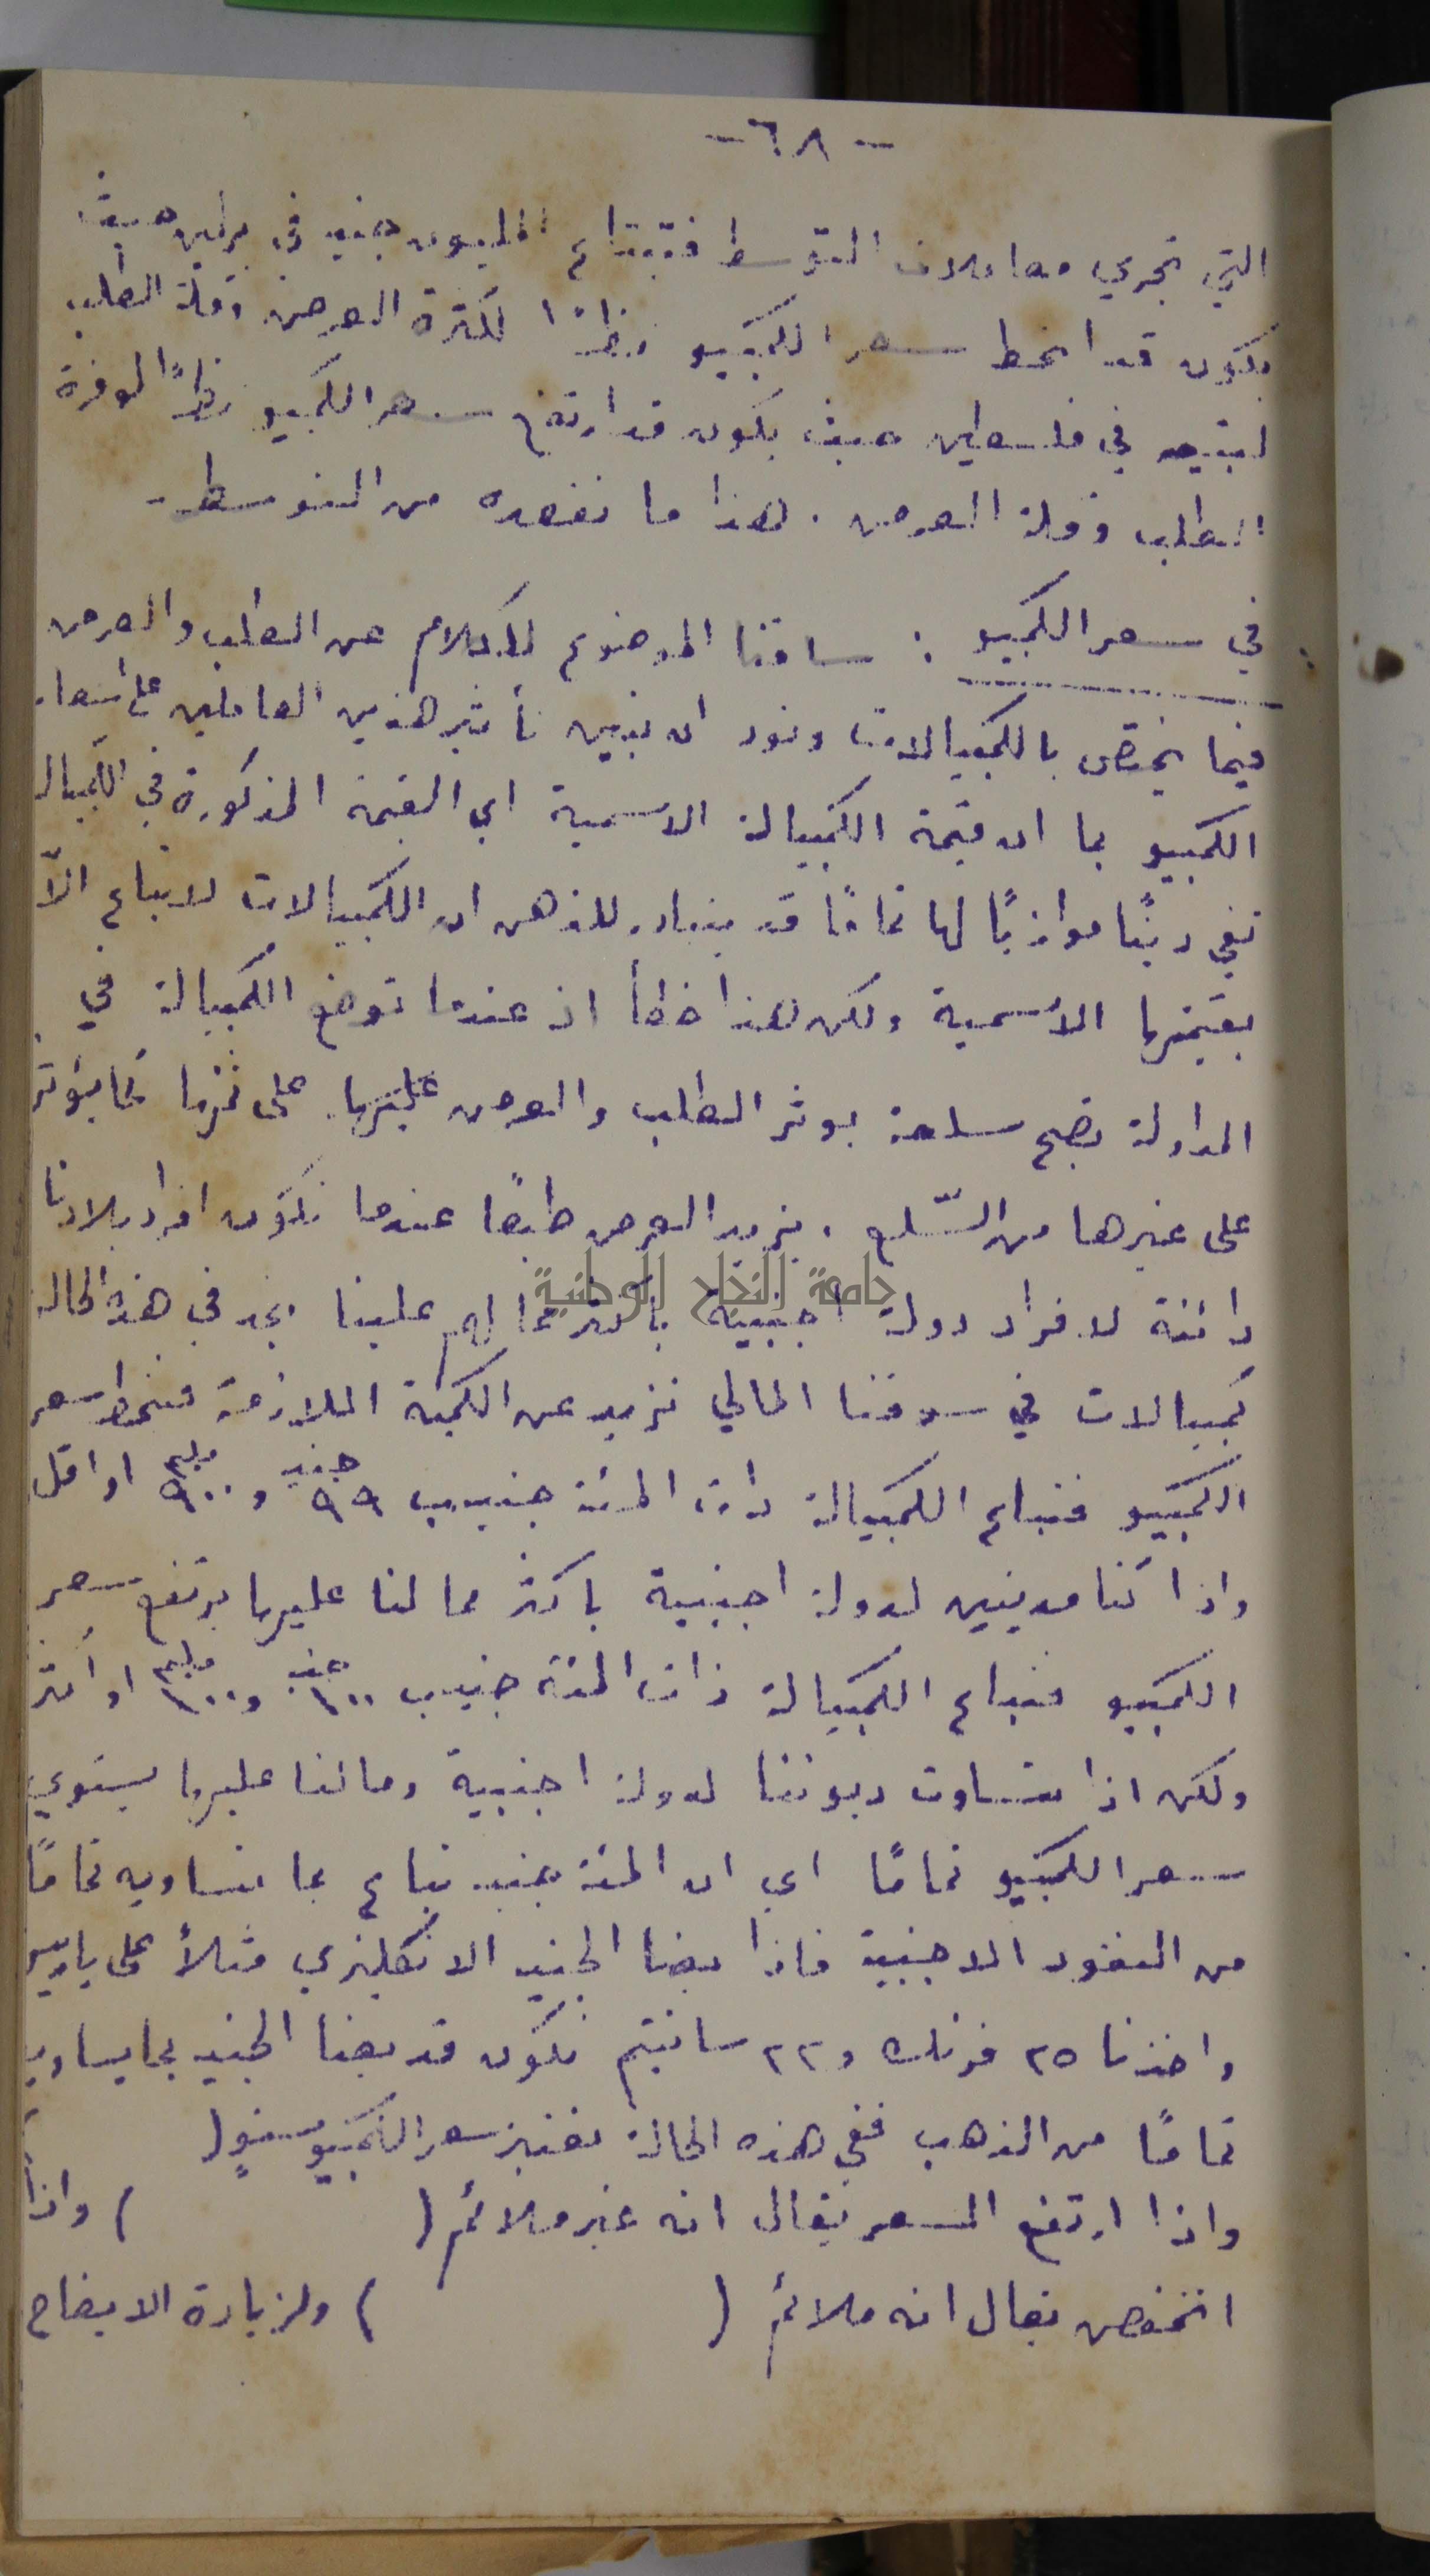 -٦٨-
التي تجري معاملات التوسط فتبتاع المليون جنيه في برلين حيث
يكون قد انحط سعر الكمبيو نظرًا لكثرة العرض وقلة الطلب
لبيعه في فلسطين حيث يكون قد ارتفع سعر الكمبيو نظرًا لوفرة
الطلب وقلة العرض . هذا ما نقصده من التوسط -
في سعر الكمبيو : ساقنا الموضوع للكلام عن الطلب والعرض
فيما يختص بالكمبيالات ونود ان نبين تأثير هذين العاملين على اسعار
الكمبيو بما ان قيمة الكمبيالة الاسمية اي القيمة المذكورة في الكمبيالة
تفي دينًا موازيًا لها تمامًا قد يتبادر للذهن ان الكمبيالات لا تباع الّا
بقيمتها الاسمية ولكن هذا خطأ اذ عندما توضع الكمبيالة في
المداولة تصبح سلعة يوثر الطلب والعرض عليها على ثمنها كما يؤثر
على غيرها من السّلع . يزيد العرض طبعًا عندما تكون افراد بلادنا
دائنة لافراد دولة اجنبية باكثر مما لهم علينا نجد في هذه الحالة
كمبيالات في سوقنا المالي تزيد عن الكمية اللازمة فينحط سعر
الكمبيو فتباع الكمبيالة ذات المئة جنيه ب ٩٩ جنيه و ٩٠٠ مليم او اقل
واذا كنا مدينين لدولة اجنبية باكثر مما لنا عليها يرتفع سعر
الكمبيو فتباع الكمبيالة ذات المئة جنيه ب ١٠٠ جنيه و ١٠٠ مليم او أكثر
ولكن اذا تساوت ديوننا لدولة اجنبية وما لنا عليها يستوي
سعر الكمبيو تمامًا اي ان المئة جنيه تباع بما تساويه تمامًا
من النقود الاجنبية فاذا بعنا الجنيه الانكليزي مثلاً على باريس
واخذنا ٢٥ فرنك و ٢٢ سانتيم نكون قد بعنا الجنيه بما يساويه
تمامًا من الذهب ففي هذه الحالة نعتبر سعر الكمبيو مستوٍ ( )
واذا ارتفع السعر يقال انه غير ملائم ( ) واذا
انخفض يقال انه ملائم ( ) ولزيادة الايضاح
جامعة النجاح الوطنية